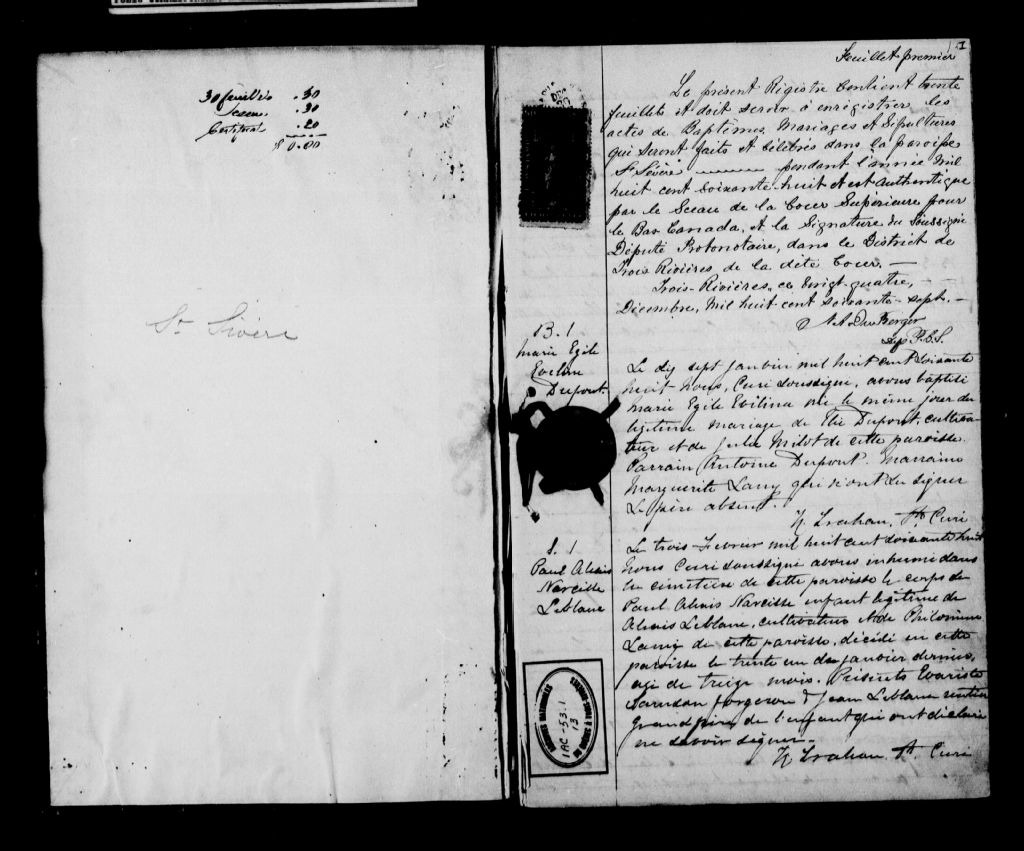 30 feuillets .30
Sceau .30
Certificat .20
$ 0.80
St Sévère
1
Feuillet premier
Le présent Régistre Contient trente
feuillets et doit servir à enrégistrer les
actes de Baptêmes, Mariages et Sépultures
qui seront faits et célébrés dans la paroisse
St Sévère pendant l'année Mil
huit cent soixante huit et est authentiqué
par le Sceau de la Cour Supérieure pour
le Bas Canada, et la Signature du Soussigné
Député Protonotaire, dans le District de
Trois Rivières de la dite Cour. —
Trois-Rivières, ce Vingt-quatre,
Décembre, Mil huit cent soixante-sept. —
Dep P.C.S.
B. 1
Marie Egile
Evelina
Dupont.
Le dix sept Janvier mil huit cent soixante
huit Nous, Curé soussigné, avons baptisé
Marie Egile Evilina née le même jour du
légitime mariage de Elie Dupont, cultiva-
teur et de Julie Milot de cette paroisse.
Parrain Antoine Dupont. Marraine
Marguerite Lamy qui n'ont su signer
Le père absent.
N. Trahan, Ptre Curé
S. 1
Paul Alexis
Narcisse
Leblanc
Le trois Fevrier mil huit cent soixante huit
Nous Curé soussigné avons inhumé dans
le cimetière de cette paroisse le corps de
Paul Alexis Narcisse enfant légitime de
Alexis Leblanc, cultivateur et de Philomène
Lamy de cette paroisse, décédé en cette
paroisse le trente un de janvier dernier,
agé de treize mois. Présents Evariste
forgeron & Jean Leblanc rentier
Grand père de l'enfant qui ont déclaré
ne savoir signer.
N. Trahan, Ptre Curé
ARCHIVES NATIONALES
1AC-53.1
13